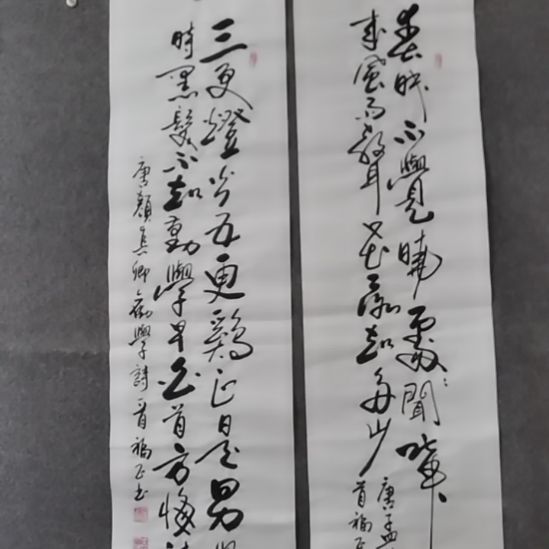 春眠不覺曉處々聞啼
来風雨聲花落知多少
唐孟
首福正
三更燈火五更鷄正是男
時黑髮不知勤學早白首方悔
唐顏真卿勸學詩一首福正书